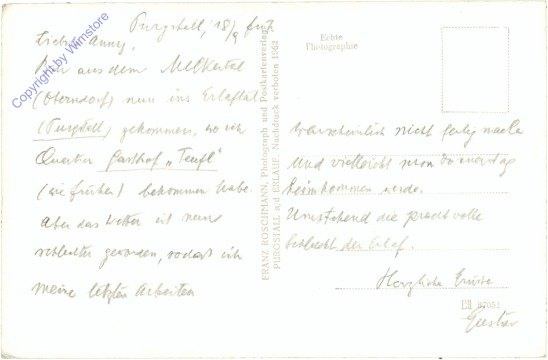 Copyright by Wimstore
Purgstall, 18/9 früh
Liebe Anny,
Bin aus dem Melktal
(Oberndorf) nun ins Erlaftal
(Purgstall) gekommen, wo ich
Quartier Gasthof „Teufl"
(wie früher) bekommen habe.
Aber das Wetter ist nun
schlechter geworden, sodass ich
meine letzten Arbeiten
FRANZ ROSCHMANN, Photograph und Postkartenverlag
PURGSTALL a/d ERLAUF. Nachdruck verboten 1962
Echte
Photographie
warscheinlich nicht fertig mache
und vielleicht schon
heimkommen werde.
Umstehend die prachtvolle
Schlucht der Erlaf.
Herzliche Grüsse
87052
Gustav